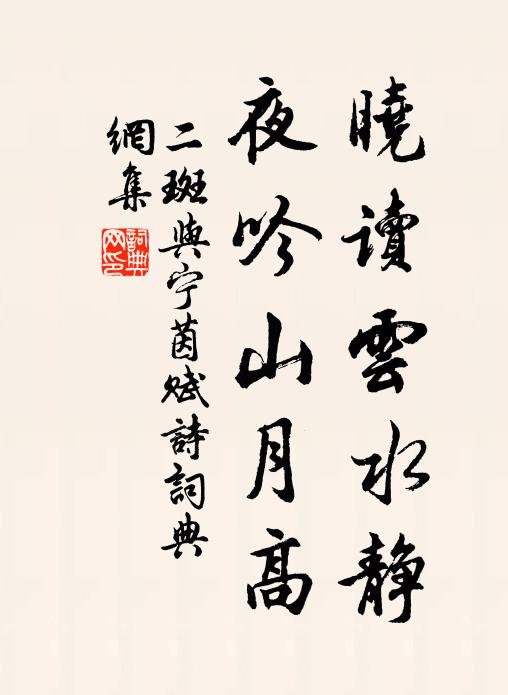 曉讀雲水靜
夜吟山月高
二斑與宁茵賦詩詞典
網集
詞典
网印